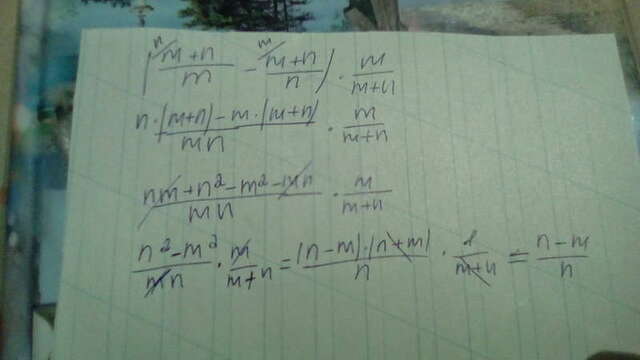 (ⁿ⁄ (m+n)/m − ᵐ⁄ (m+n)/n) · m/(m+n)
(n·(m+n)−m·(m+n))/(mn) · m/(m+n)
(nm+n²−m²−mn)/(mn) · m/(m+n)
(n²−m²)/(mn) · m/(m+n) = ((n−m)·(n+m))/n · 1/(m+n) = (n−m)/n